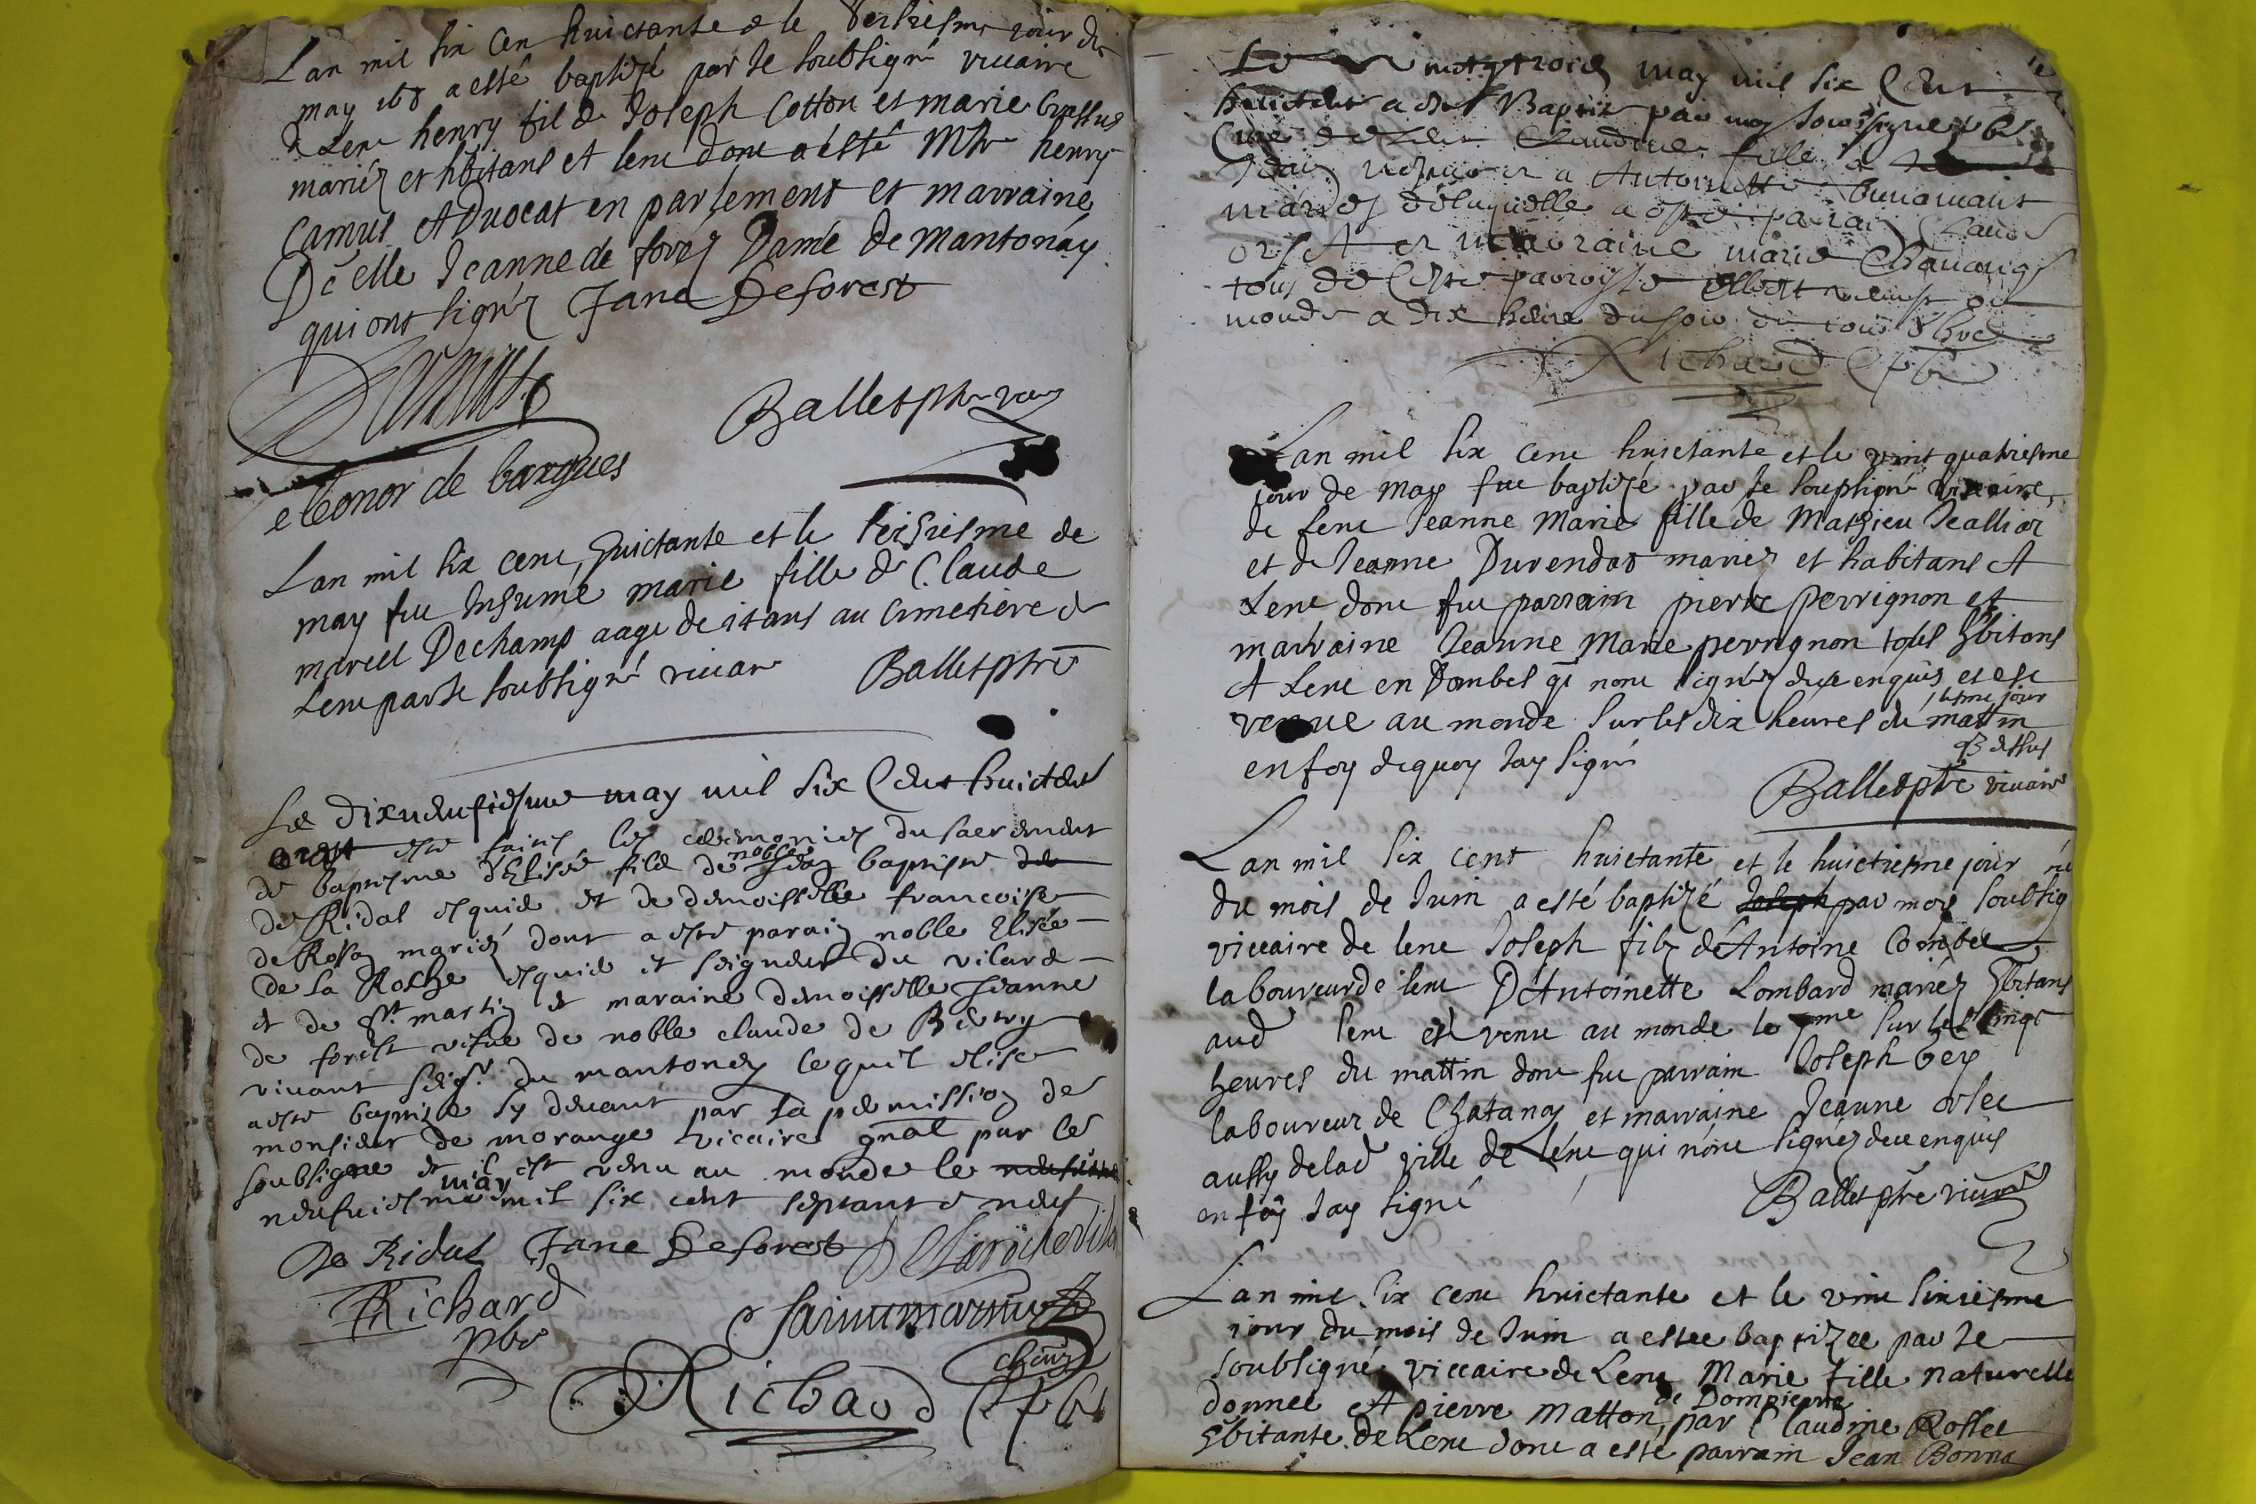 Lan mil six cen huictante & le seisiesme jour de
may 168 a esté baptizé par Je soubsigné viccaire
de Lene henry fil de Joseph Cotton et marie
mariéz et hbitans et lene donc a esté Mtr henry
Camus Advocat en parlement et marraine
Dēelle Jeanne de forez Dame de Mantonay
qui ont signéz Jane Deforest
Camus
Ballet ptre vicr
eleonor de bargues
Lan mil six cene huictante et le seisiesme de
may fue Inhumé marie fille de Claude
marcel Dechamp aage de 12 ans au Cimetière de
Lene par Je soubsigné vicare Ballet ptrē
Le dixneufiesme may mil six Cent huictent
ont este faicts les ceremonies du sacrement
de baptesme d'Elisée filz de noble Jean baptiste de
de Ridal esquier et de demoiselle francoise
de Rosay mariéz dont a este parain noble Elisée
de La Roche esquier et seigneur du vilard
et de St martin et maraine demoiselle Jeanne
de forest vefue de noble claude de
vivant seigr du mantoney lequel elise
a este baptize sy devant par la permission de
monsieur de morange vicaire gnāl par le
soubsigne et il est venu au monde le neufuie
neufuiesme may mil six cent septante neuf
De Ridal Jane Deforest DeLarochevila
Richard saintmartin
pbr
Richard pbr
Le vingttrois may mil six Cent
huictent a este Baptize par moy soussigne pbr
Cure de Lene Claudine fille a
Jean a Antoinette
mariez delaquelle a este parain Claude
orset et maraine marie
tous de Ceste parroysse elle est venust au
monde a dix heure du soir du jour
Richard pbr
Lan mil six cene huictante et le vint quatriesme
jour de may fue baptizé par Je soupsigné viccaire
de Lene Jeanne Marie fille de Mathieu Jeallior
et de Jeanne Durendot mariez et habitans A
Lene donc fue parrain pierre perrignon et
marraine Jeanne Marie perrignon tous hbitans
A Lene en Dombes qi none signéz deue enquis et est
venue au monde sur les dix heures du mattin
en foy dequoy Jay signé
Ballet ptre vicaire
Lan mil six cent huictante et le huictiesme jour
du mois de Juin a esté baptizé Joseph par moy soubsig né
viccaire de lene Joseph filz d'Antoine Combet
laboureur de lene D'Antoinette Lombard mariéz hbitans
aud lene est venu au monde le 7me sur les cinqt
heures du mattin donc fue parrain Joseph bey
laboureur de Chatanay et marraine Jeanne orset
aussy delad ville de Lene qui none signéz deue enquis
en foy Jay signé Ballet ptre vicare
Lan mil six cene huictante et le vint sixiesme
jour du mois de Juin a estee baptizee par Je
soubsigné viccaire de Lene Marie fille naturelle
donnee A pierre Matton de Dompierre par Claudine Rosset
hbitante de Lene donc a esté parrain Jean Bonna